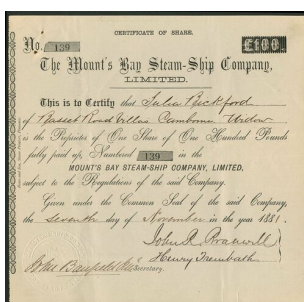 CERTIFICATE OF SHARE.
No. 139 £100
The Mount's Bay Steam-Ship Company,
LIMITED.
This is to Certify that Julia Bickford
of Basset Road Villas Camborne Widow
is the Proprietor of One Share of One Hundred Pounds
fully paid up, Numbered 139 in the
MOUNT'S BAY STEAM-SHIP COMPANY, LIMITED,
subject to the Regulations of the said Company.
Given under the Common Seal of the said Company,
the Seventh day of November in the year 1881.
John R Branwell
Henry Trembath
Secretary.